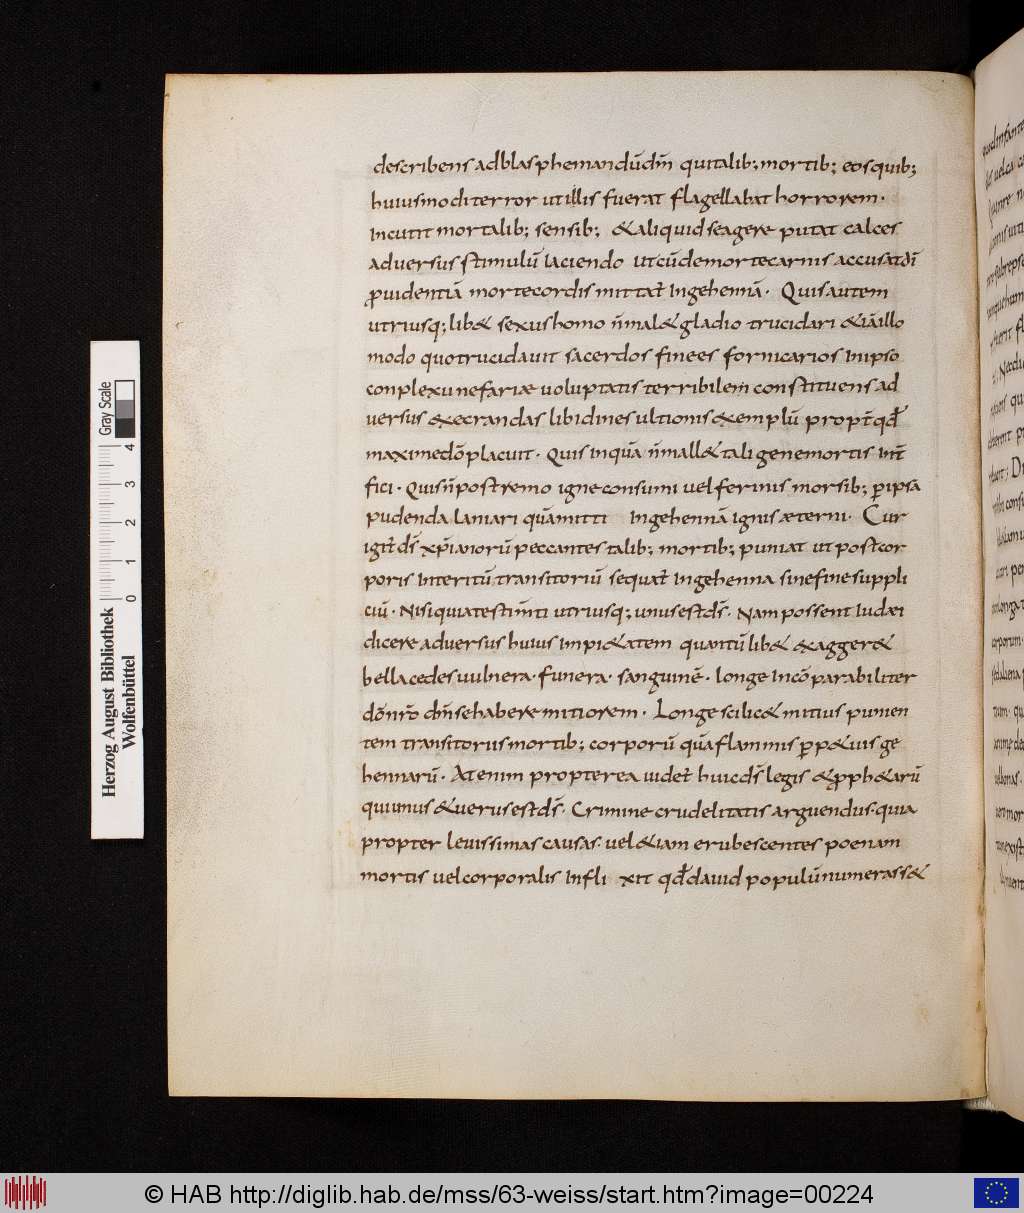 describens adblasphemandū dm̄ quitalib; mortib; eosquib;
huiusmodi terror utillis fuerat flagellabat horrorem·
Incutit mortalib; sensib; &aliquid seagere putat calces
adversus stimulū Iaciendo utcūdemortecarnis accusat dī
ꝓuidentiā mortecordis mittat̄ Ingehennā· Quisautem
utriusq; lib& sexushomo n̄mal& gladio trucidari &iāillo
modo quotrucidauit sacerdos finees fornicarios Inipso
conplexu nefariæ uoluptatis terribilem constituens ad
versus &ecrandas libidines ultionis &emplū propt̄ qđ
maximedōplacuit· Quis Inquā n̄mall& tali genemortis Int̄
fici· Quisn̄postremo igneconsumi uel ferinis morsib; ꝑipsa
pudenda laniari quāmitti Ingehennā ignis æterni· Cur
igit̄ ds̄ xp̄ianorū peccantes talib; mortib; puniat ut postcor
poris Interitū transitoriū sequat̄ Ingehenna sinefine suppli
ciū· Nisiquiatestim̄ti utriusq; unusestds̄· Nam possent Iudæi
dicere adversus huius Impi&atem quantū lib& &agger&
bella cedes uulnera· funera· sanguinē· longe Incōparabiliter
dōnr̄o dm̄sehabere mitiorem· Longe scilic& mitius punien
tem transitoriis mortib; corporū quāflammis ꝑp&uis ge
hennarū· Atenim propterea uidet̄ huicds̄ legis &prph&arū
quiunus &verus estds̄· Crimine crudelitatis arguendus· quia
propter leuissimas causas· uel &iam erubescentes poenam
mortis uelcorporalis Infli xit qđdauid populūnumerass&
Herzog August Bibliothek
Wolfenbüttel
0 1 2 3 4
Gray Scale
© HAB http://diglib.hab.de/mss/63-weiss/start.htm?image=00224